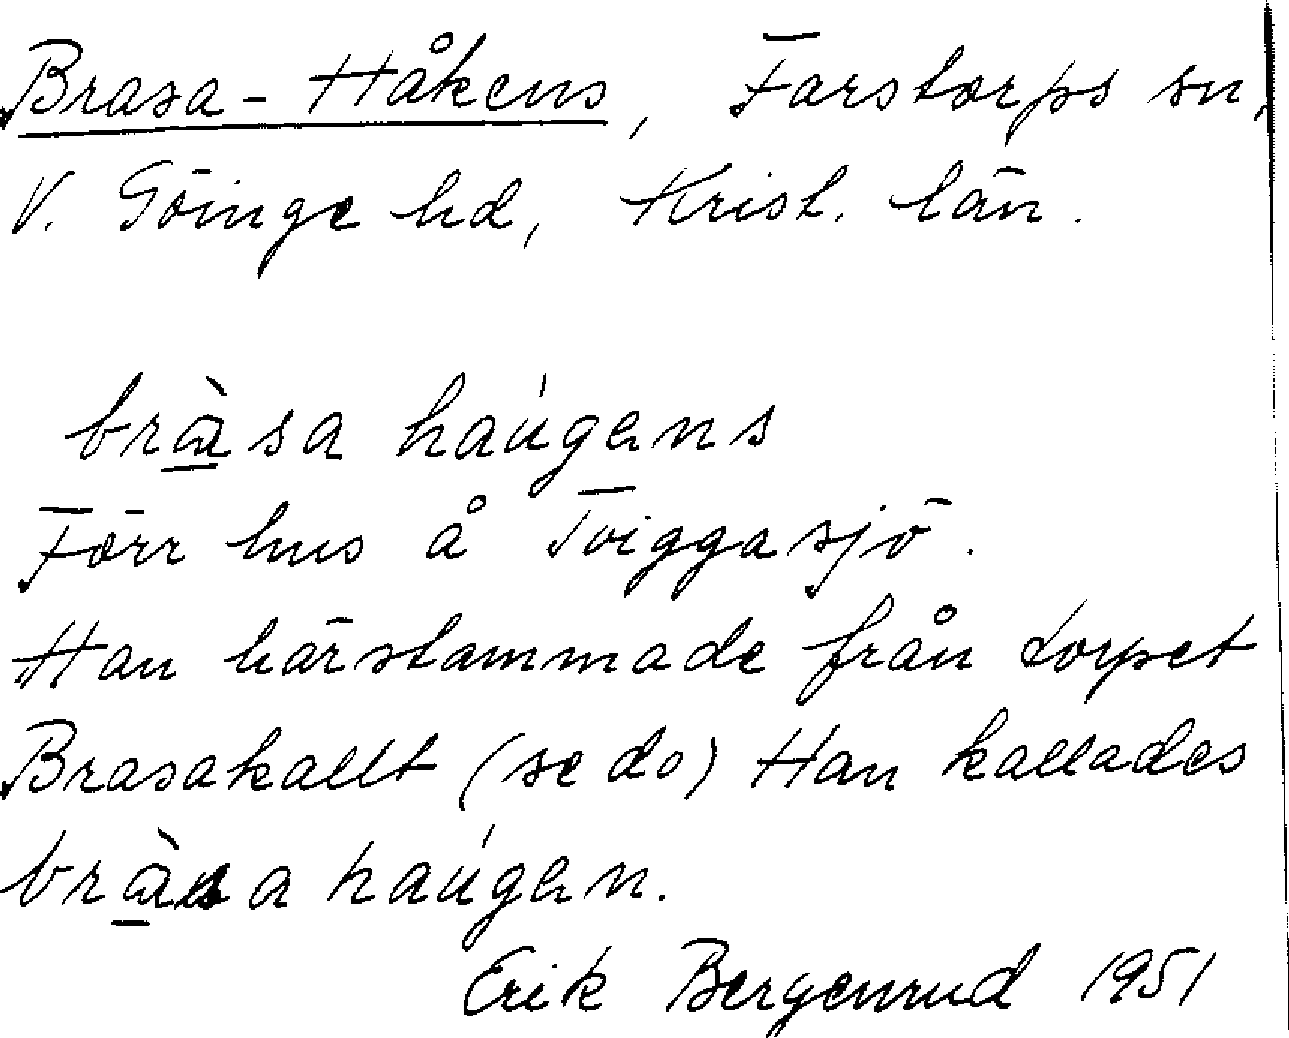 Brasa-Håkens, Farstorps sn,
V. Göinge hd, Krist. län.
bràsa haúgens
Förr hus å Tviggasjö.
Han härstammade från torpet
Brasakallt (se do) Han kallades
bràsa haúgen.
Erik Bergenrud 1951